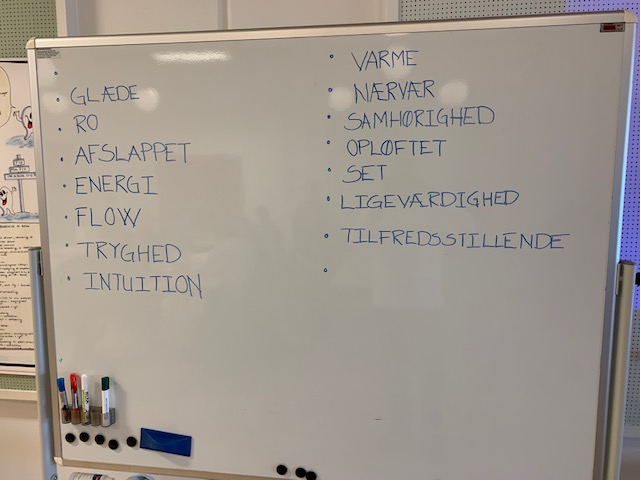 GLÆDE
RO
AFSLAPPET
ENERGI
FLOW
TRYGHED
INTUITION
VARME
NÆRVÆR
SAMHØRIGHED
OPLØFTET
SET
LIGEVÆRDIGHED
TILFREDSSTILLENDE